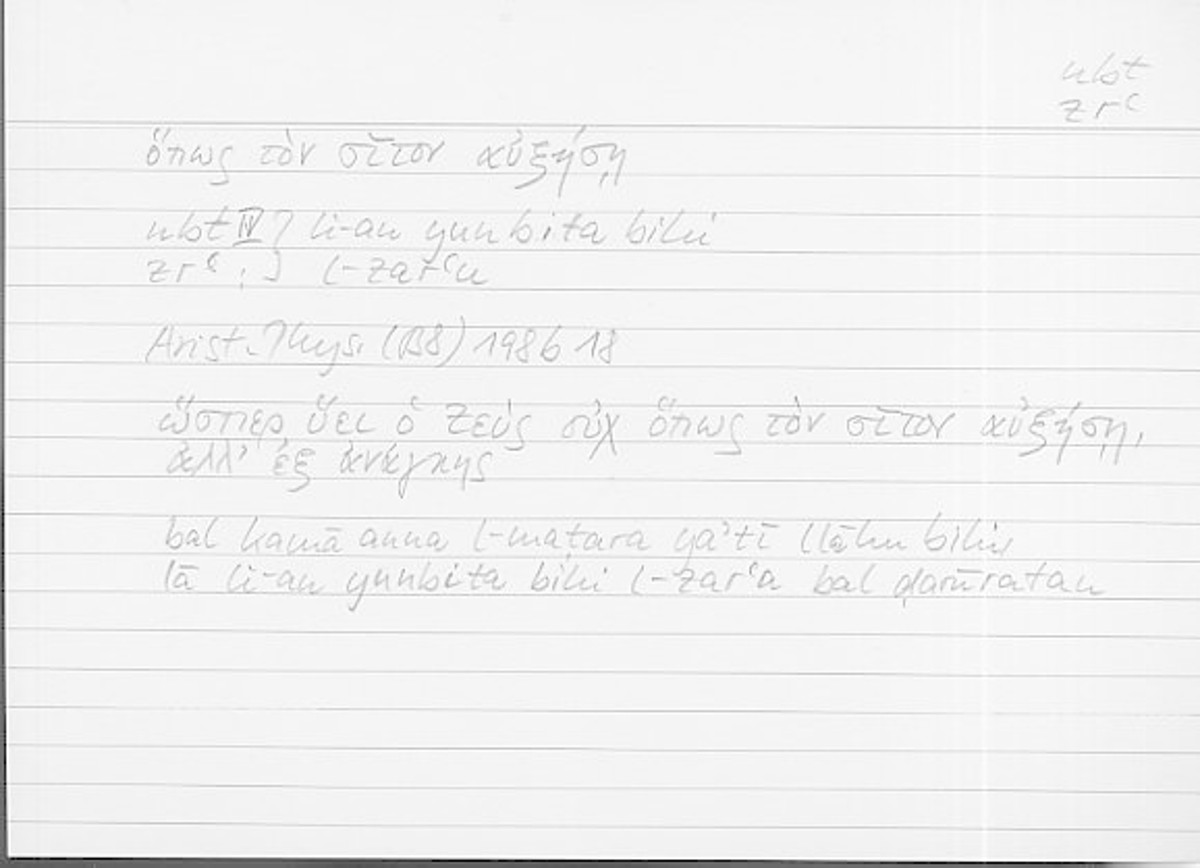 nbt
zrʿ
ὅπως τὸν σῖτον αὐξήσῃ
nbt IV } li-an yunbita bihi
zrʿ : } l-zarʿu
Arist. Phys. (B8) 198b18
ὥσπερ ὕει ὁ Ζεύς οὐχ ὅπως τὸν σῖτον αὐξήσῃ,
ἀλλ' ἐξ ἀνάγκης
bal kamā anna l-maṭara yaʾtī llāhu bihi,
lā li-an yunbita bihi l-zarʿa bal ḍarūratan